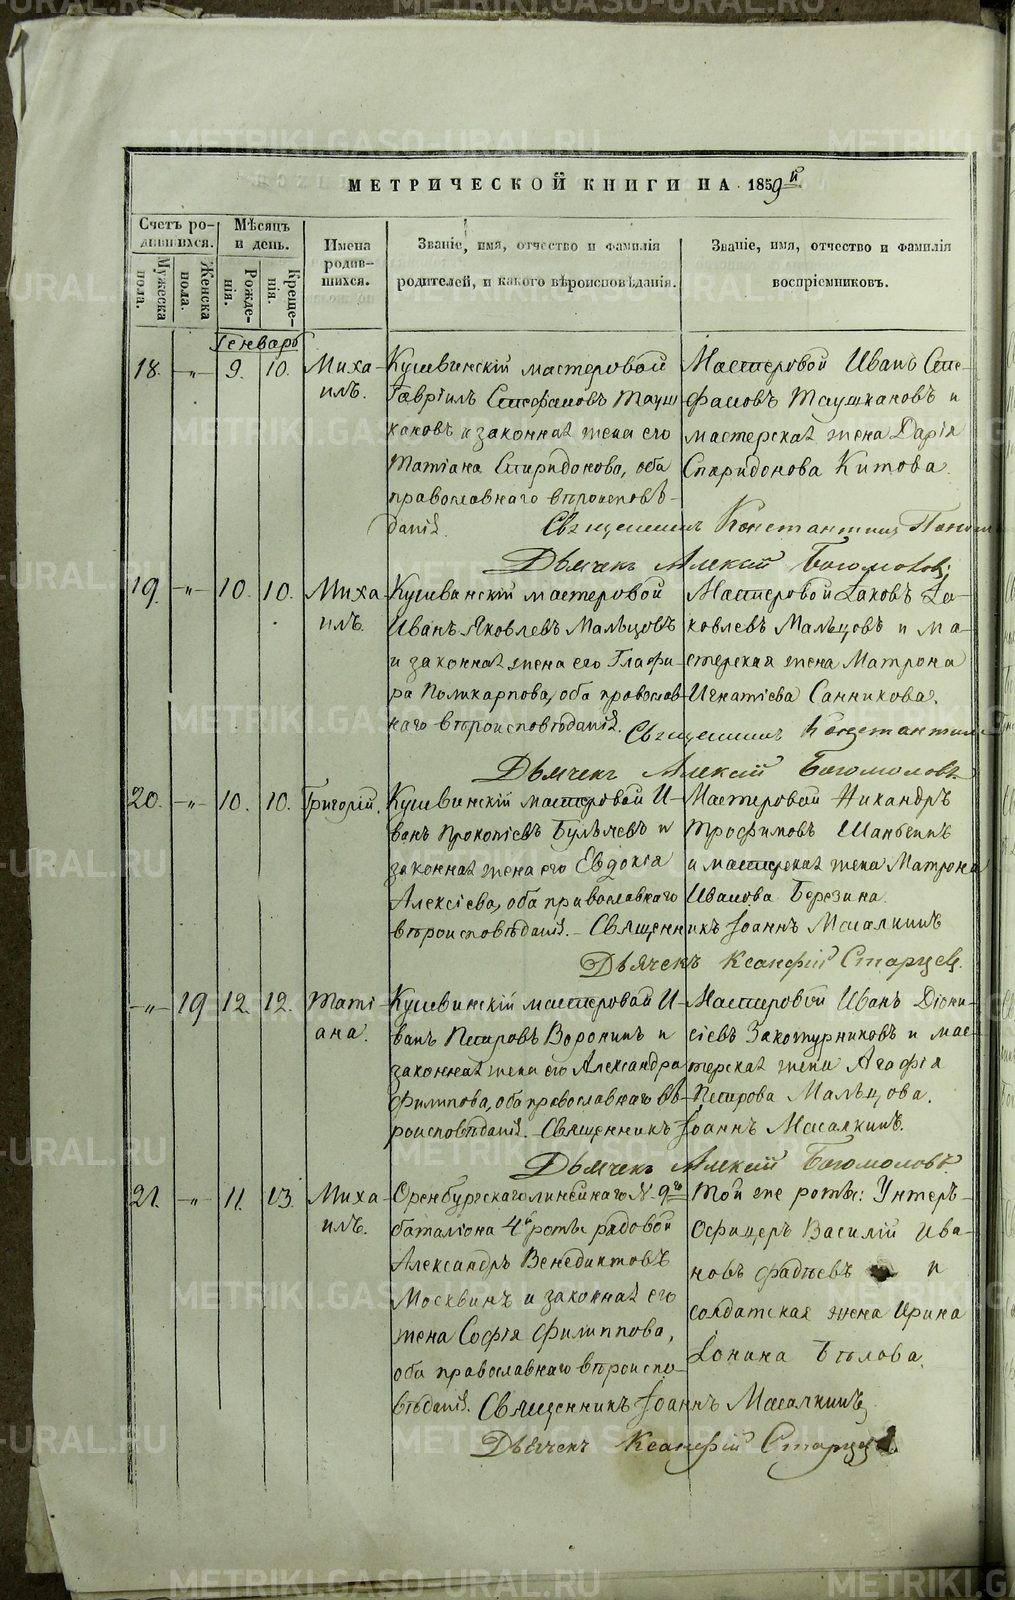 METRIKI.GASO-URAL.RU
МЕТРИЧЕСКОЙ КНИГИ НА 1859й
Счетъ родившихся.
Мѣсяцъ и день.
Имена родившихся.
Званіе, имя, отчество и фамилія родителей, и какого вѣроисповѣданія.
Званіе, имя, отчество и фамилія воспріемниковъ.
Мужеска пола.
Женска пола.
Рожденія.
Крещенія.
Генварь
18. -„- 9. 10. Михаилъ.
Кушвинскій мастеровой
Гавріилъ Стефановъ Тауш
кановъ и законная жена его
Татіана Спиридонова, оба
православнаго вѣроисповѣ-
данія.
Мастеровой Иванъ Сте-
фановъ Таушкановъ и
мастерская жена Дарія
Спиридонова Китова.
Священникъ Константинъ
Дьячекъ Алексій Богомоловъ
19. -„- 10. 10. Михаилъ.
Кушвинскій мастеровой
Иванъ Яковлевъ Мальцовъ
и законная жена его Глафи-
ра Поликарпова, оба православ-
наго вѣроисповѣданія.
Мастеровой Іаковъ Іа-
ковлевъ Мальцовъ и ма-
стерская жена Матрона
Игнатіева Санникова.
Священникъ Константинъ
Дьячекъ Алексій Богомоловъ
20. -„- 10. 10. Григорій.
Кушвинскій мастеровой И-
ванъ Прокопіевъ Булычевъ и
законная жена его Евдокія
Алексіева, оба православнаго
вѣроисповѣданія.
Мастеровой Никандръ
Трофимовъ
и мастерская жена Матрона
Иванова Березина.
Священникъ Іоаннъ Масалкинъ
Дьячекъ Ксанфій Старцевъ.
-„- 19 12. 12. Татіана.
Кушвинскій мастеровой И-
ванъ Петровъ Воронинъ и
законная жена его Александра
Филипова, оба православнаго вѣ-
роисповѣданія.
Мастеровой Иванъ Діони-
сіевъ Закотурниковъ и мас-
терская жена Агафія
Петрова Мальцова.
Священникъ Іоаннъ Масалкинъ.
Дьячекъ Алексій Богомоловъ.
21. -„- 11. 13. Михаилъ.
Оренбургскаго линейнаго № 9го
баталіона 4й роты рядовой
Александръ Венедиктовъ
Москвинъ и законная его
жена Софія Филиппова,
оба православнаго вѣроиспо-
вѣданія.
Той же роты: Унтеръ-
Офицеръ Василій Ива-
новъ Фадѣевъ и
солдатская жена Ирина
Іонина Бѣлова.
Священникъ Іоаннъ Масалкинъ
Дьячекъ Ксанфій Старцевъ